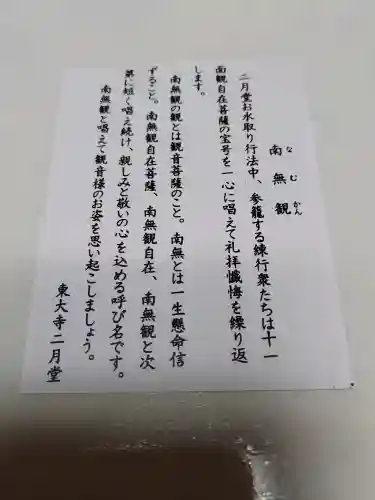 南無観
なむかん
二月堂お水取り行法中、参籠する練行衆たちは十一
面観自在菩薩の宝号を一心に唱えて礼拝懺悔を繰り返
します。
南無観の観とは観音菩薩のこと。南無とは一生懸命信
ずること。南無観自在菩薩、南無観自在、南無観と次
第に短く唱え続け、親しみと敬いの心を込める呼び名です。
南無観と唱えて観音様のお姿を思い起こしましょう。
東大寺二月堂